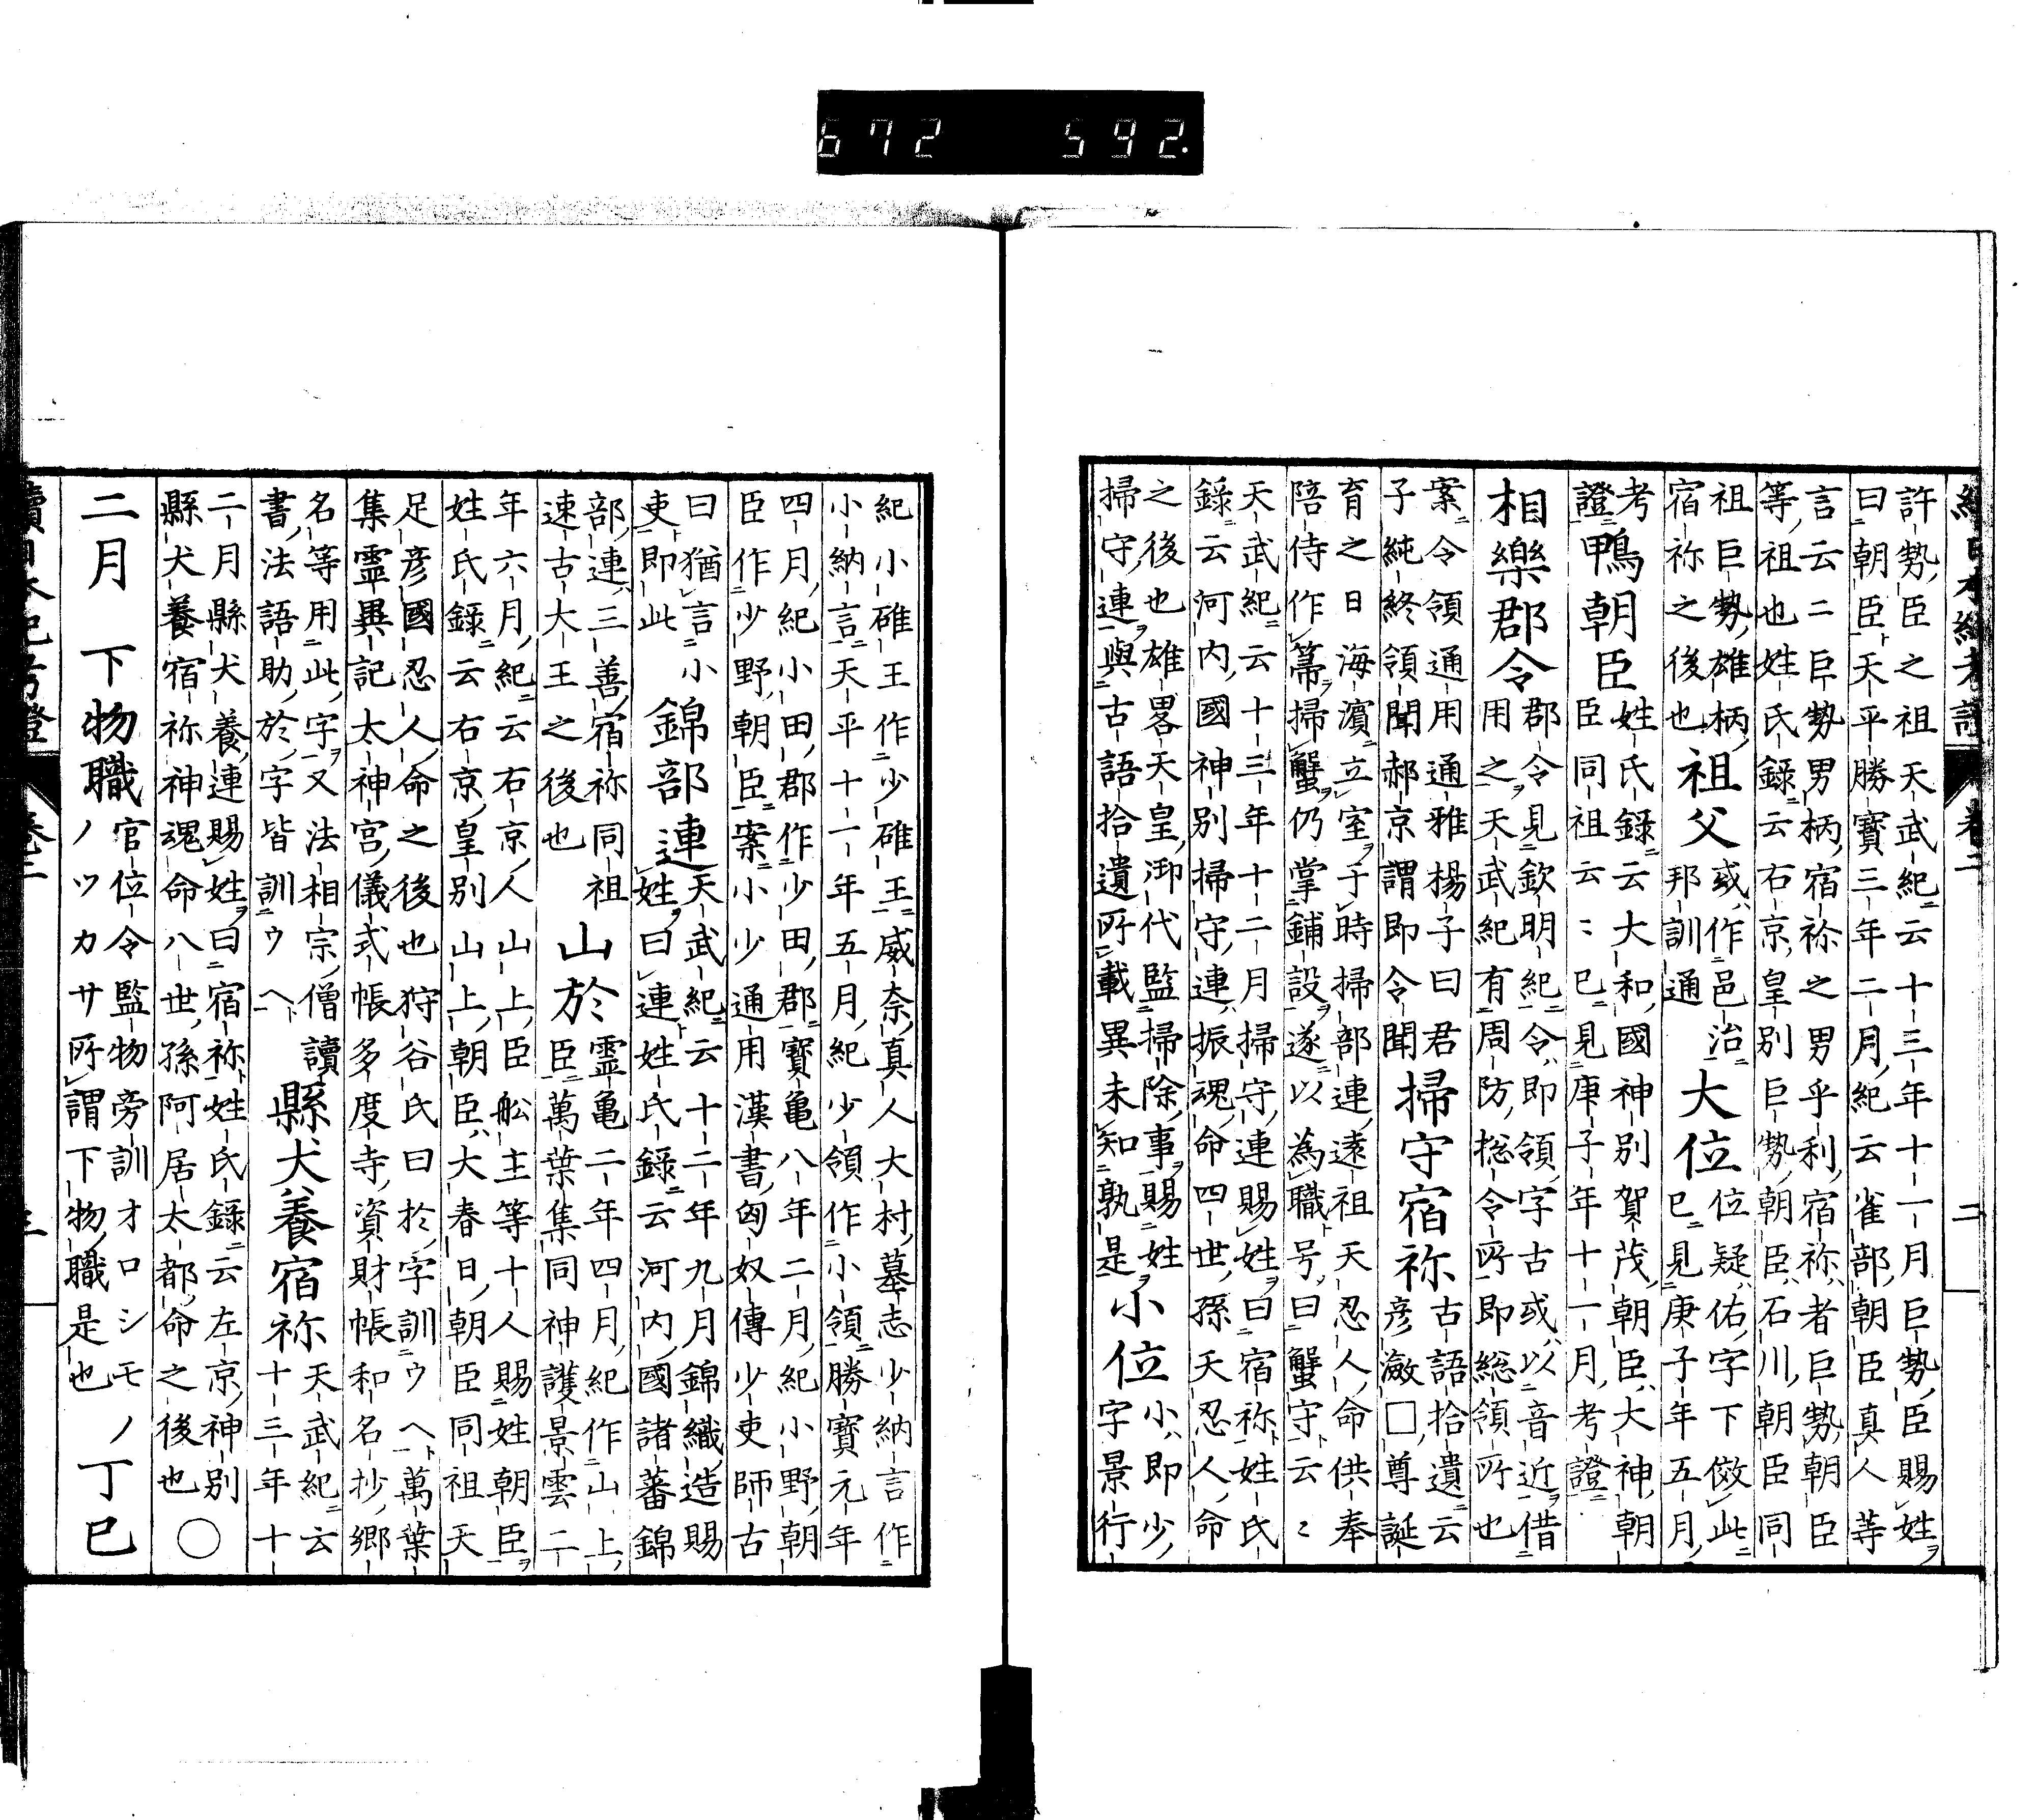 許勢臣之祖天武紀云十三年十一月巨勢臣賜姓ヲ
曰朝臣ト天平勝寶三年二月紀云雀部朝臣真人等
言云二巨勢男柄宿祢之男乎利宿祢者巨勢朝臣
等祖也姓氏録云右京皇別巨勢朝臣石川朝臣同
祖巨勢雄柄
宿祢之後也
祖父
或作邑治
邦訓通
大位
位疑佑字下傚此
已見庚子年五月
考
證
鴨朝臣
姓氏録云大和國神別賀茂朝臣大神朝
臣同祖云〻已見庫子年十一月考證
相樂郡令
郡令見欽明紀令即領字古或以音近借
用之天武紀有周防捴令所即総領所也
案令領通用通雅揚子曰君
子純終領聞郝京謂即令聞
掃守宿祢
古語拾遺云
彦瀲□尊誕
育之日海濱立室于時掃部連遠祖天忍人命供奉
陪侍作箒掃蟹仍掌鋪設遂以為職号曰蟹守云〻
天武紀云十三年十二月掃守連賜姓曰宿祢姓氏
録云河内國神別掃守連振魂命四世孫天忍人命
之後也雄畧天皇御代監掃除事賜姓
掃守連與古語拾遺所載異未知孰是
小位
小即少
字景行
紀小碓王作少碓王威奈真人大村墓志少納言作
小納言天平十一年五月紀少領作小領勝寶元年
四月紀小田郡作少田郡寶亀八年二月紀小野朝
臣作少野朝臣案小少通用漢書匈奴傳少吏師古
曰猶言小
吏即此
錦部連
天武紀云十二年九月錦織造賜
姓曰連姓氏録云河内國諸蕃錦
部連三善宿祢同祖
速古大王之後也
山於
霊亀二年四月紀作山上
臣萬葉集同神護景雲二
年六月紀云右京人山上臣舩主等十人賜姓朝臣
姓氏録云右京皇別山上朝臣大春日朝臣同祖天
足彦國忍人命之後也狩谷氏曰於字訓ウヘ萬葉
集霊異記太神宮儀式帳多度寺資財帳和名抄鄉
名等用此字又法相宗僧讀
書法語助於字皆訓ウヘ
縣犬養宿祢
天武紀云
十三年十
二月縣犬養連賜姓曰宿祢姓氏録云左京神別
縣犬養宿祢神魂命八世孫阿居太都命之後也
〇
二月
下物職
官位令監物旁訓オロシモノ
ノツカサ所謂下物職是也
丁巳